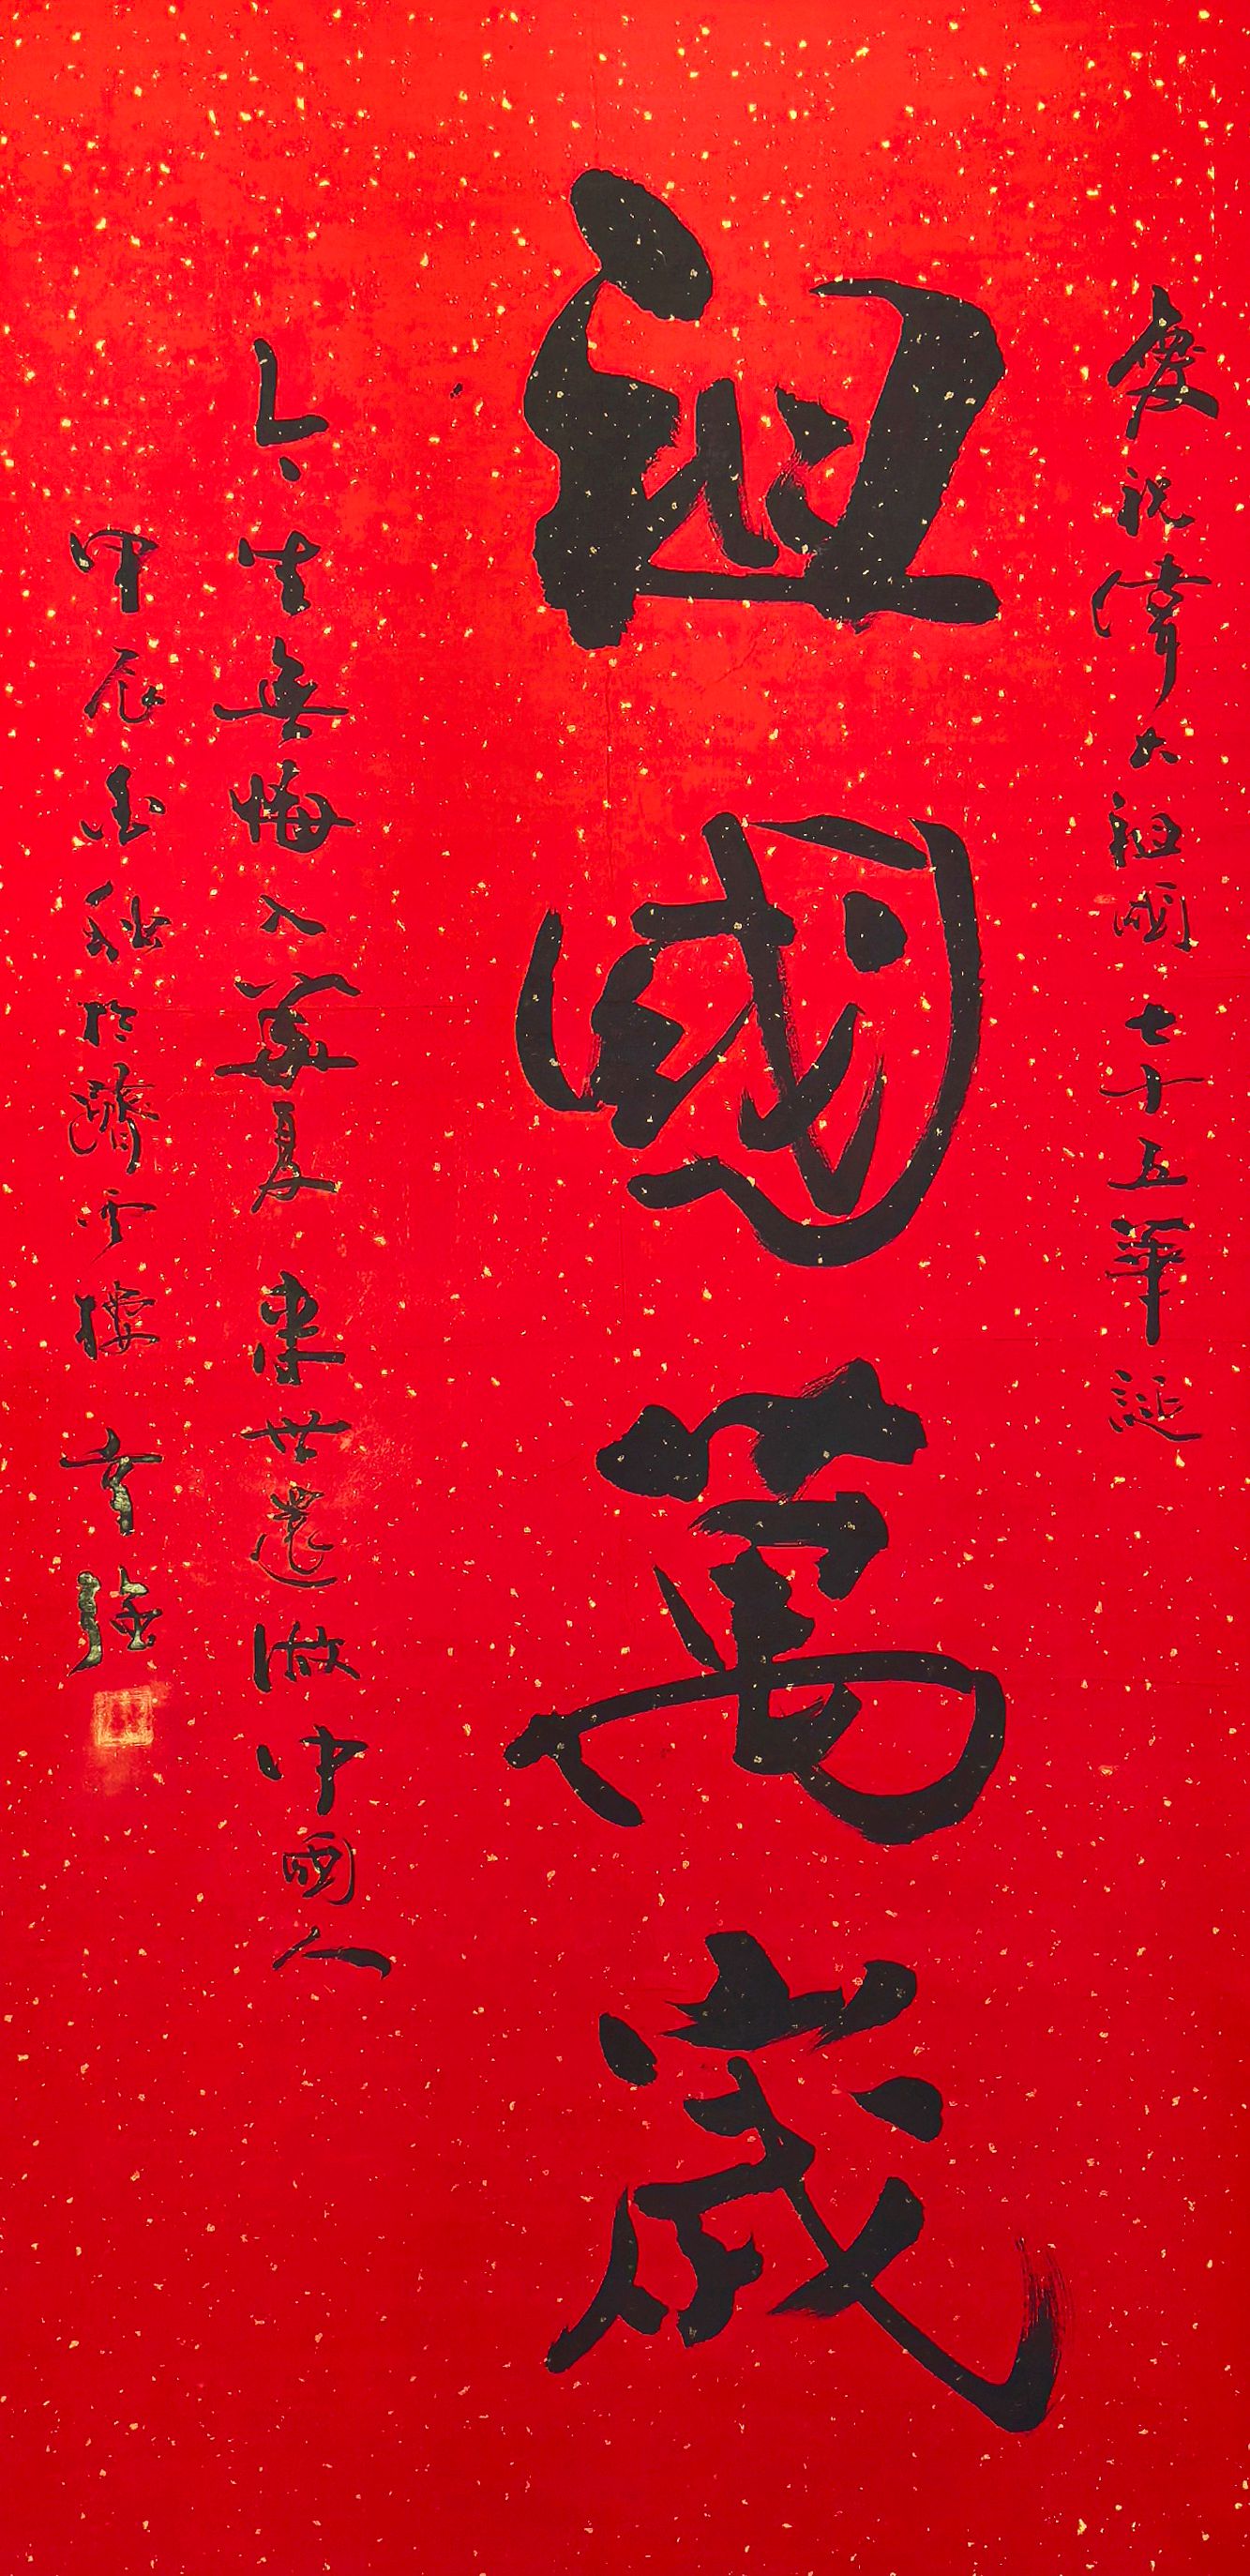 慶祝偉大祖國七十五華誕
祖國萬歲
今生無悔入華夏 來世還做中國人
甲辰金秋於濟